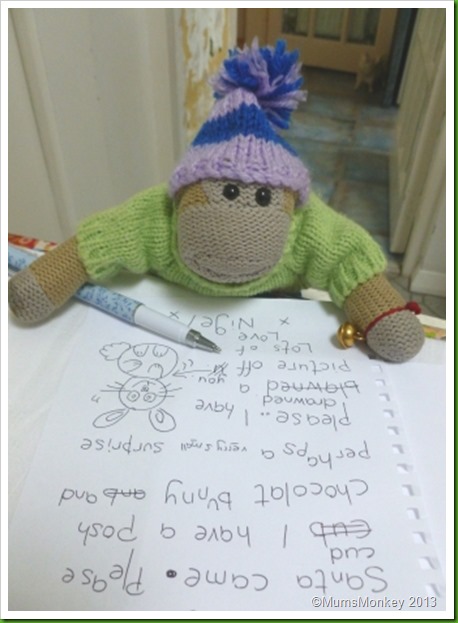 Santa came. Please
cud
cub I have a posh
chocolat bunny anb and
perhaps a very small surprise
please.. I have
drawned
blawned a
picture off you
Lots of
Love
x Nigel x
©MumsMonkey 2013